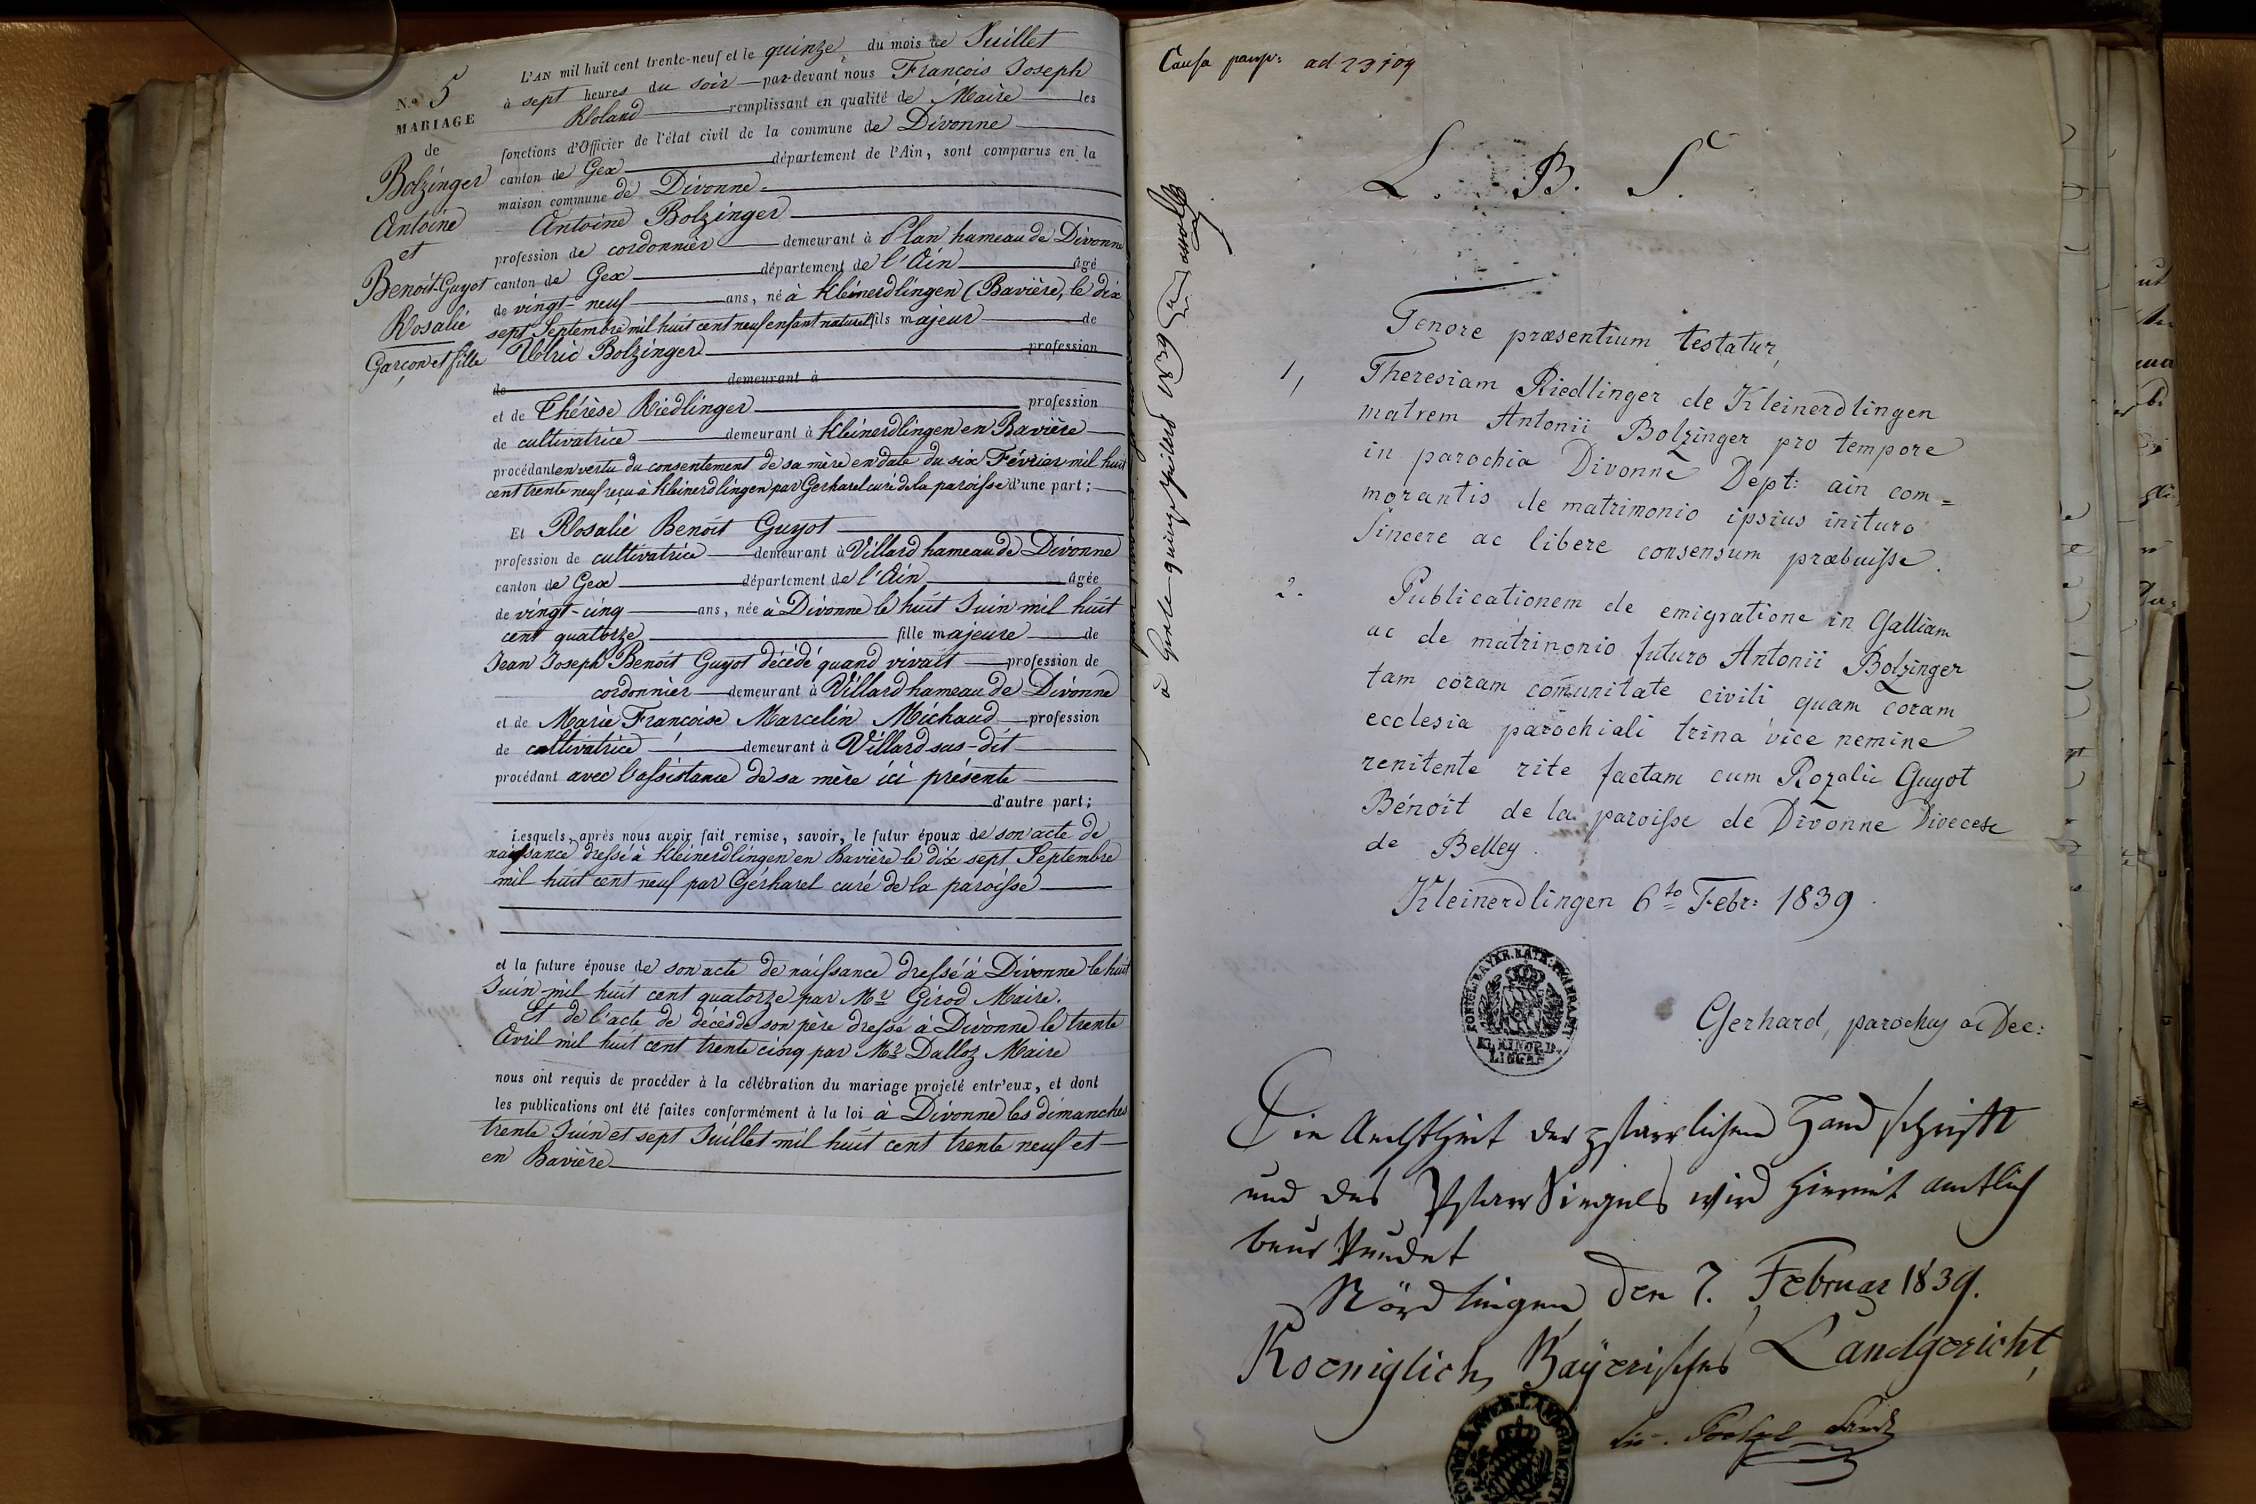 N.o 5
MARIAGE
de
Bolzinger
Antoine
et
Benoit-Guyot
Rosalie
Garçon et fille
L'AN mil huit cent trente-neuf et le quinze du mois de Juillet
à sept heures du soir par-devant nous François Joseph
Roland remplissant en qualité de Maire les
fonctions d'Officier de l'état civil de la commune de Divonne
canton de Gex département de l'Ain, sont comparus en la
maison commune de Divonne
Antoine Bolzinger
profession de cordonnier demeurant à Plan hameau de Divonne
canton de Gex département de l'Ain âgé
de vingt-neuf ans, né à Kleinerdlingen (Bavière, le dix
sept Septembre mil huit cent neuf enfant naturel fils majeur de
Ulric Bolzinger profession
de demeurant à
et de Thérèse Riedlinger profession
de cultivatrice demeurant à Kleinerdlingen en Bavière
procédant en vertu du consentement de sa mère en date du six Février mil huit
cent trente neuf reçu à Kleinerdlingen par Gerharel curé de la paroisse d'une part;
Et Rosalie Benoit Guyot
profession de cultivatrice demeurant à Villard hameau de Divonne
canton de Gex département de l'Ain âgée
de vingt-cinq ans, née à Divonne le huit Juin mil huit
cent quatorze fille majeure de
Jean Joseph Benoit Guyot décédé quand vivait profession de
cordonnier demeurant à Villard hameau de Divonne
et de Marie Françoise Marcelin Michaud profession
de cultivatrice demeurant à Villard sus-dit
procédant avec l'assistance de sa mère ici présente
d'autre part;
Lesquels, après nous avoir fait remise, savoir, le futur époux de son acte de
naissance dressé à Kleinerdlingen en Bavière le dix sept Septembre
mil huit cent neuf par Gérharel curé de la paroisse
et la future épouse de son acte de naissance dressé à Divonne le huit
Juin mil huit cent quatorze par Mr Girod Maire.
Et de l'acte de décès de son père dressé à Divonne le trente
Avril mil huit cent trente cinq par Mr Dalloz Maire
nous ont requis de procéder à la célébration du mariage projeté entr'eux, et dont
les publications ont été faites conformément à la loi à Divonne les dimanches
trente Juin et sept Juillet mil huit cent trente neuf et
en Bavière
Causa paup: ad 23
L. B. S.
Tenore præsentium testatur,
1, Theresiam Riedlinger de Kleinerdlingen
matrem Antonii Bolzinger pro tempore
in parochia Divonne Dept: ain com=
morantis de matrimonio ipsius inituro
sincere ac libere consensum præbuisse.
2. Publicationem de emigratione in Galliam
ac de matrimonio futuro Antonii Bolzinger
tam coram com̄unitate civili quam coram
ecclesia parochiali trina vice nemine
renitente rite factam cum Rozalie Guyot
Bénoit de la paroisse de Divonne Divecese
de Belley.
Kleinerdlingen 6to Febr: 1839.
Gerhard, parochus ac Dec:
Die Aechtheit der pfarrlichen Handschrift
und des Pfarr Siegels wird hiermit amtlich
beurkundet
Nördlingen den 7. Februar 1839.
Koeniglich Bayerisches Landgericht,